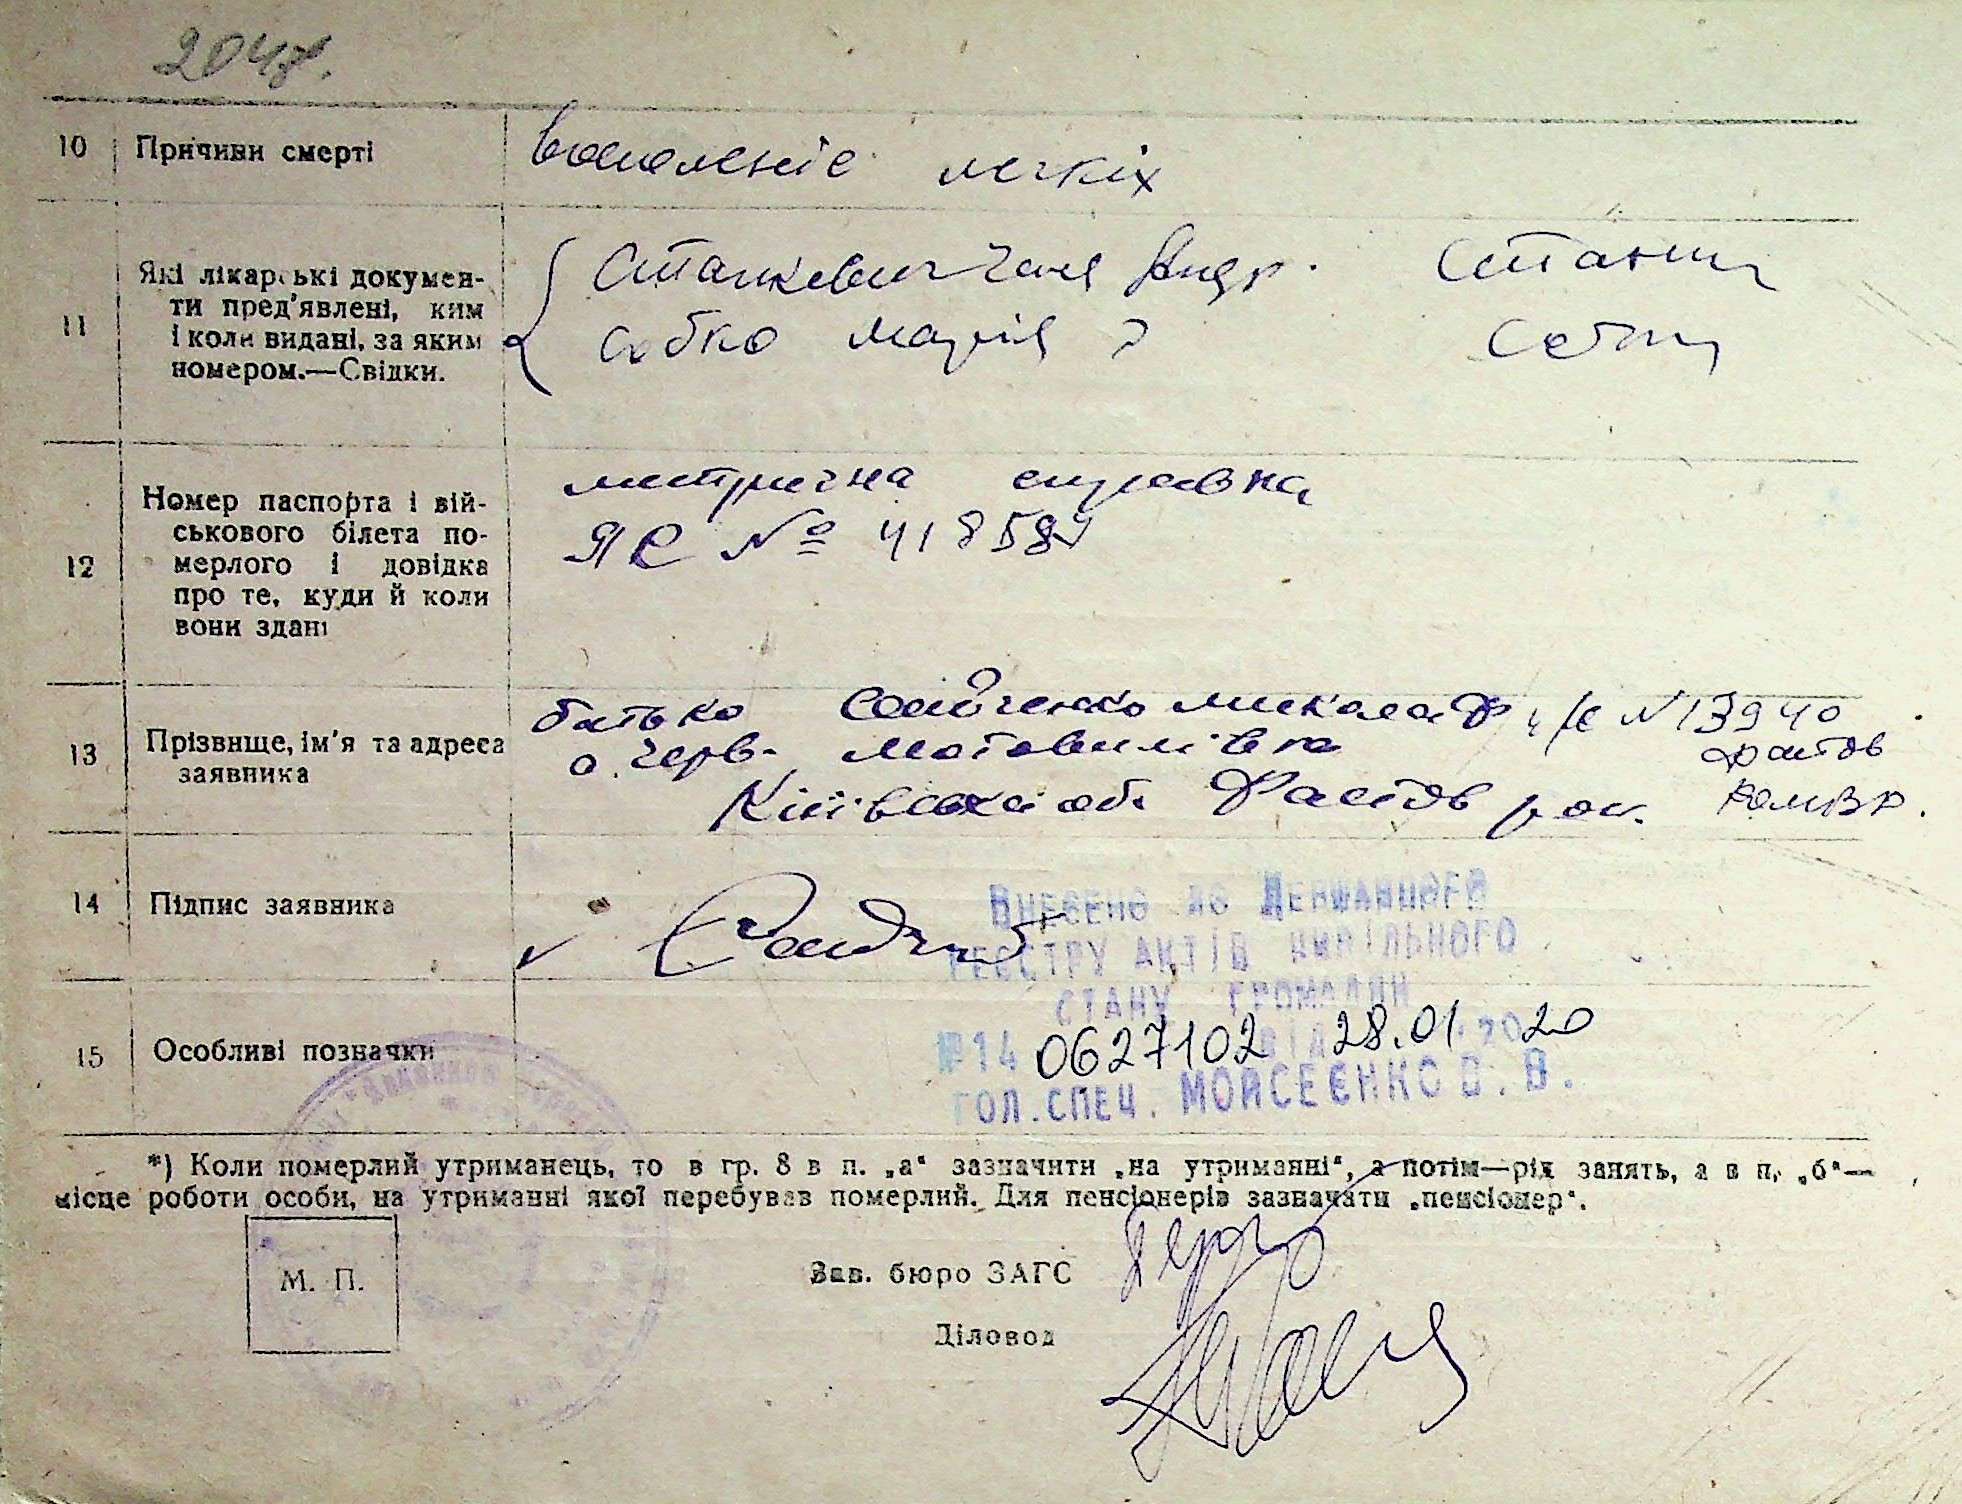 204
10 Причини смерті
воспаленіе легкіх
11 Які лікарські докумен-
ти пред'явлені, ким
і коли видані, за яким
номером.—Свідки.
Станкевич Ганя Андр. Станк
Собко Марія Собк
12 Номер паспорта і вій-
ськового білета по-
мерлого і довідка
про те, куди й коли
вони здані
метрична справка
ЯС № 418584
13 Прізвище, ім'я та адреса
заявника
батько Микола Ф № 13940
с. Черв. Мотовилівка Фастов
Київської обл Фастов рай.
14 Підпис заявника
Внесено до Державного
реєстру актів цивільного
стану громадян
№14 0627102 від 28.01.2020
гол.спец. Мойсеєнко В.В.
15 Особливі позначки
*) Коли померлий утриманець, то в гр. 8 в п. „а“ зазначити „на утриманні“, а потім—рід занять, а в п. „б“—
місце роботи особи, на утриманні якої перебував померлий. Для пенсіонерів зазначати „пенсіонер“.
М. П.
Зав. бюро ЗАГС
Діловод